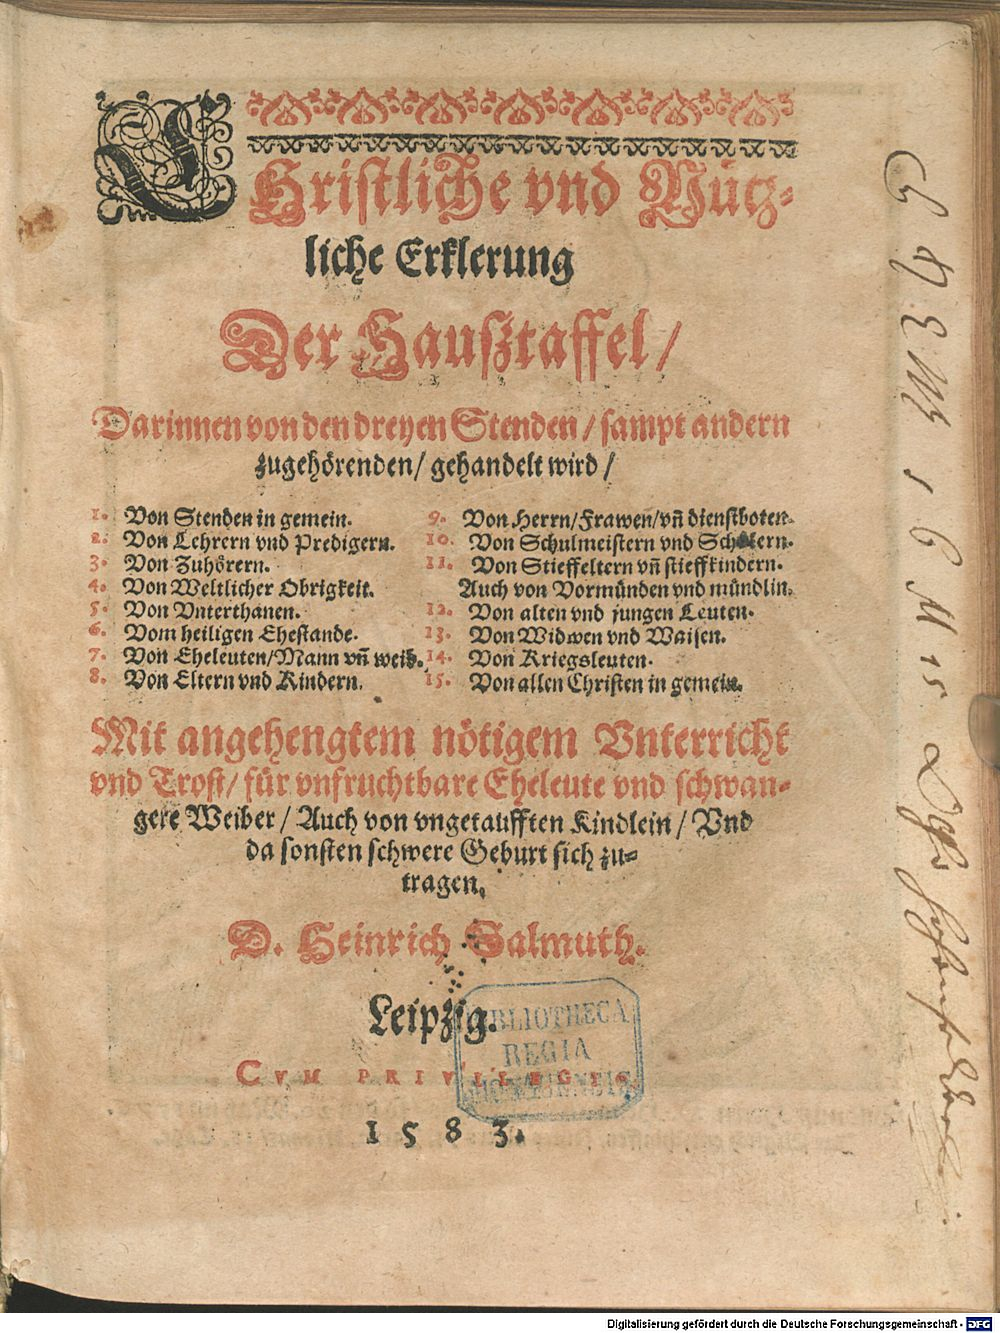 CHristliche vnd Nütz-
liche Erklerung
Der Hausztaffel/
Darinnen von den dreyen Stenden/ sampt andern
zugehörenden/ gehandelt wird/
1. Von Stenden in gemein.
2. Von Lehrern vnd Predigern.
3. Von Zuhörern.
4. Von Weltlicher Obrigkeit.
5. Von Vnterthanen.
6. Vom heiligen Ehestande.
7. Von Eheleuten/Mann vñ weib.
8. Von Eltern vnd Kindern.
9. Von Herrn/Frawen/vñ dienstboten.
10. Von Schulmeistern vnd Schülern.
11. Von Stieffeltern vñ stieffkindern.
Auch von Vormünden vnd mündlin.
12. Von alten vnd jungen Leuten.
13. Von Widwen vnd Waisen.
14. Von Kriegsleuten.
15. Von allen Christen in gemein.
Mit angehengtem nötigem Vnterricht
vnd Trost/ für vnfruchtbare Eheleute vnd schwan-
gere Weiber/ Auch von vngetaufften Kindlein/ Vnd
da sonsten schwere Geburt sich zu-
tragen.
D. Heinrich Salmuth.
Leipzig.
CVM PRIVILEGIO.
1583.
BIBLIOTHECA
REGIA
MONACENSIS
Digitalisierung gefördert durch die Deutsche Forschungsgemeinschaft - DFG